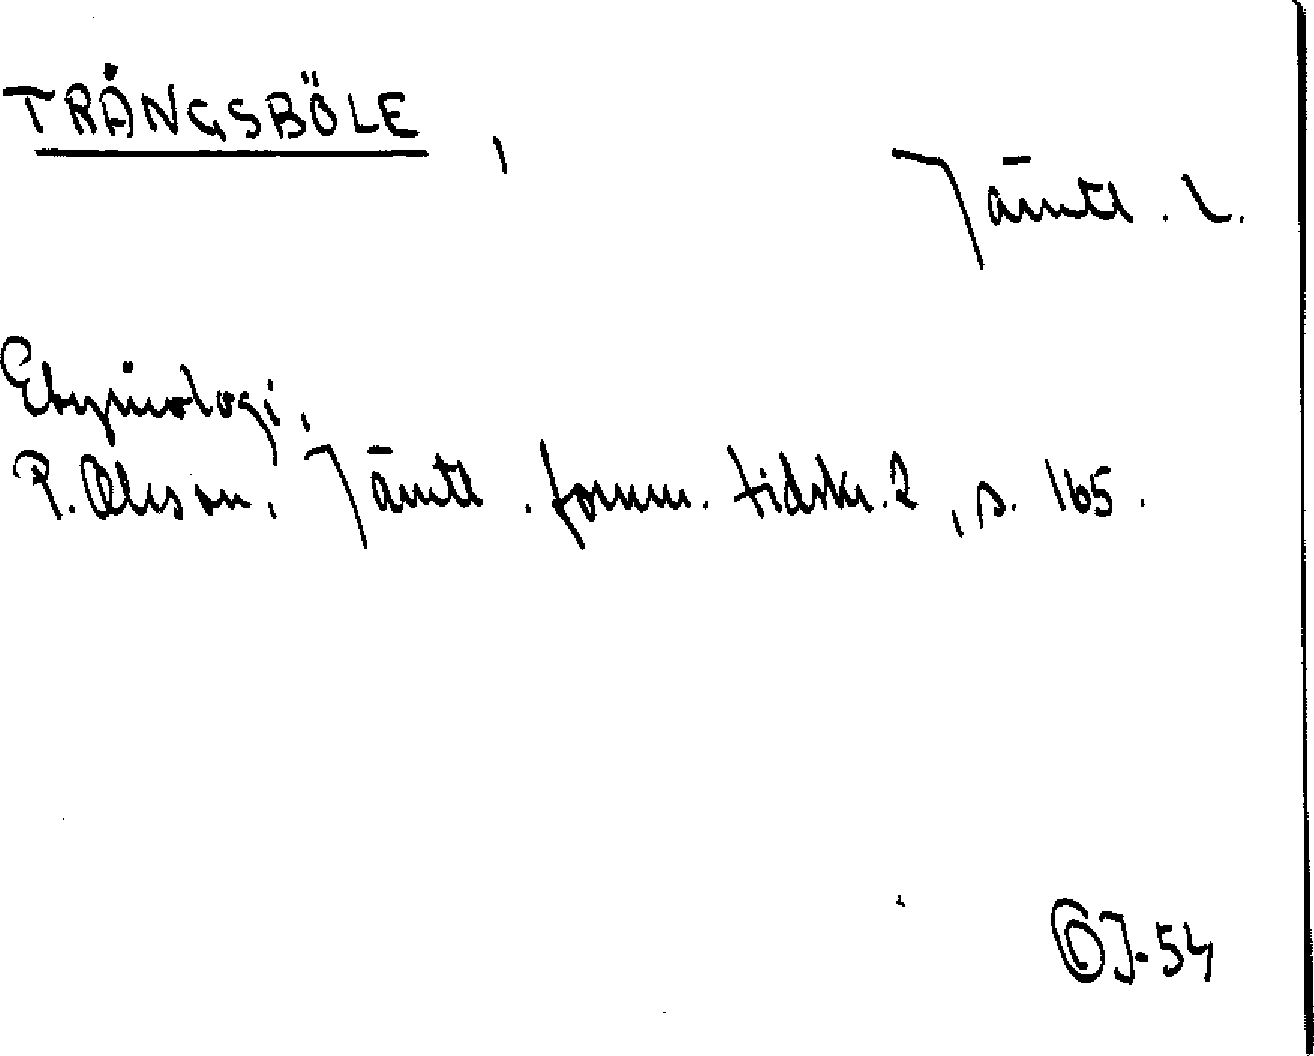 TRÅNGSBÖLE,
Jämtl. L.
Etymologi.
P. Olsson, Jämtl. fornm. tidskr. 2, s. 165.
J-54